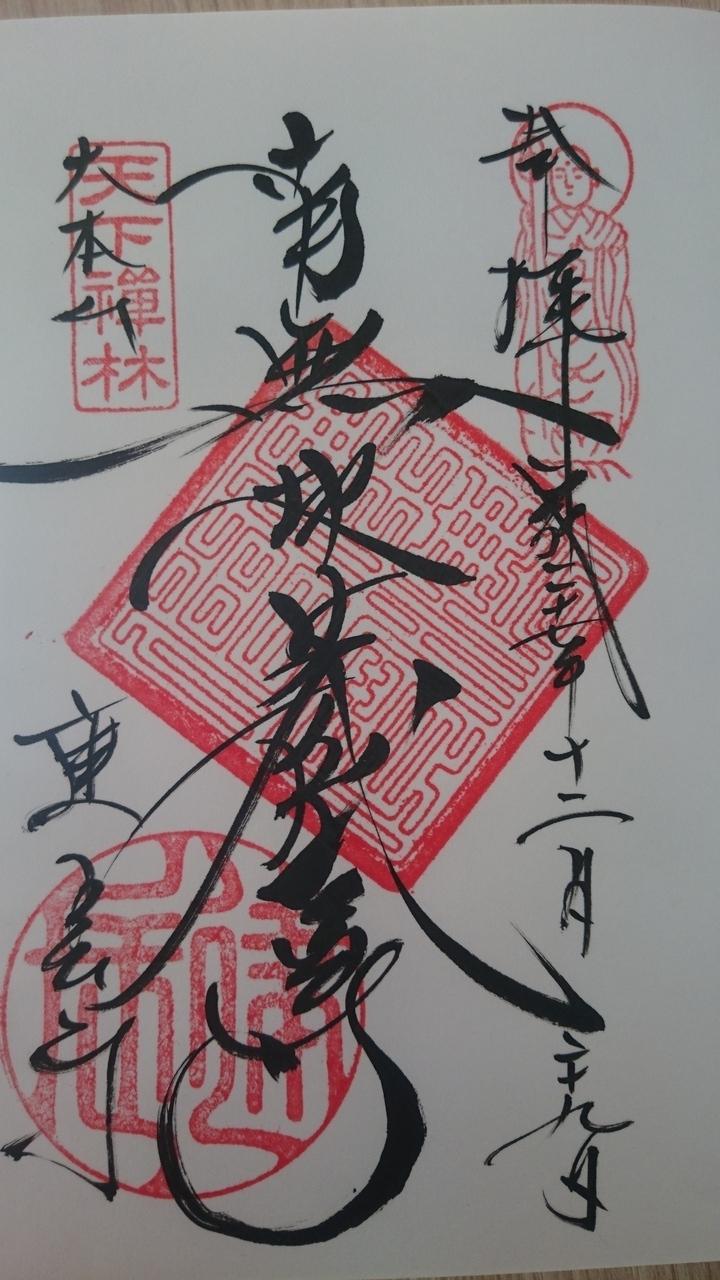 奉拝 平成二十七年十二月二十九日
南無地蔵尊
大本山 建長寺
天下禪林